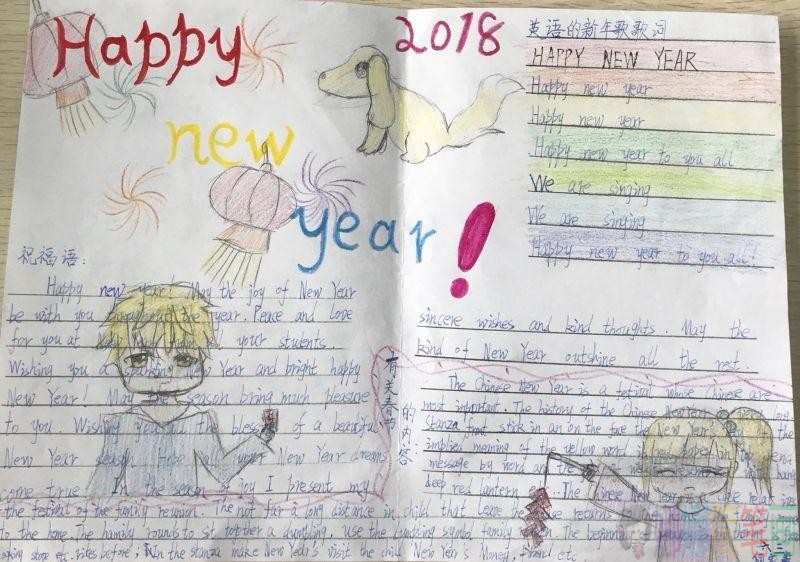 Happy
new
year!
2018
英语的新年歌歌词
HAPPY NEW YEAR
Happy new year
Happy new year
Happy new year to you all
We are singing
We are singing
Happy new year to you all!
祝福语:
Happy new year! May the joy of New Year
be with you throughout the year. Peace and love
for you at from your students
Wishing you a sparkling New Year and bright happy
New Year! May the season bring much pleasure
to you. Wishing you all the blessings of a beautiful
New Year season. Hope all your New Year dreams
come true. In the season of joy I present my
sincere wishes and kind thoughts. May the
kind of New Year outshine all the rest.
有关春节的内容
The Chinese New Year is a festival whose chinese are
most important. The history of the Chinese New Year is very long
Stanza front stick in an on the face the New Year of the
implied meaning of the yellow word in red paper in
message by word and the well
deep red lantern The Chinese New Year is close relat
the festival of the family reunion. The not far a long distance in child that leave he she returns to the home. The family round
To the home. The hamily rounds to sit together a dumpling, use the dumpling symbol family The beginning of is
etc. rites before; In the stanza make New Year's visit the child New Year's Money, friend etc.